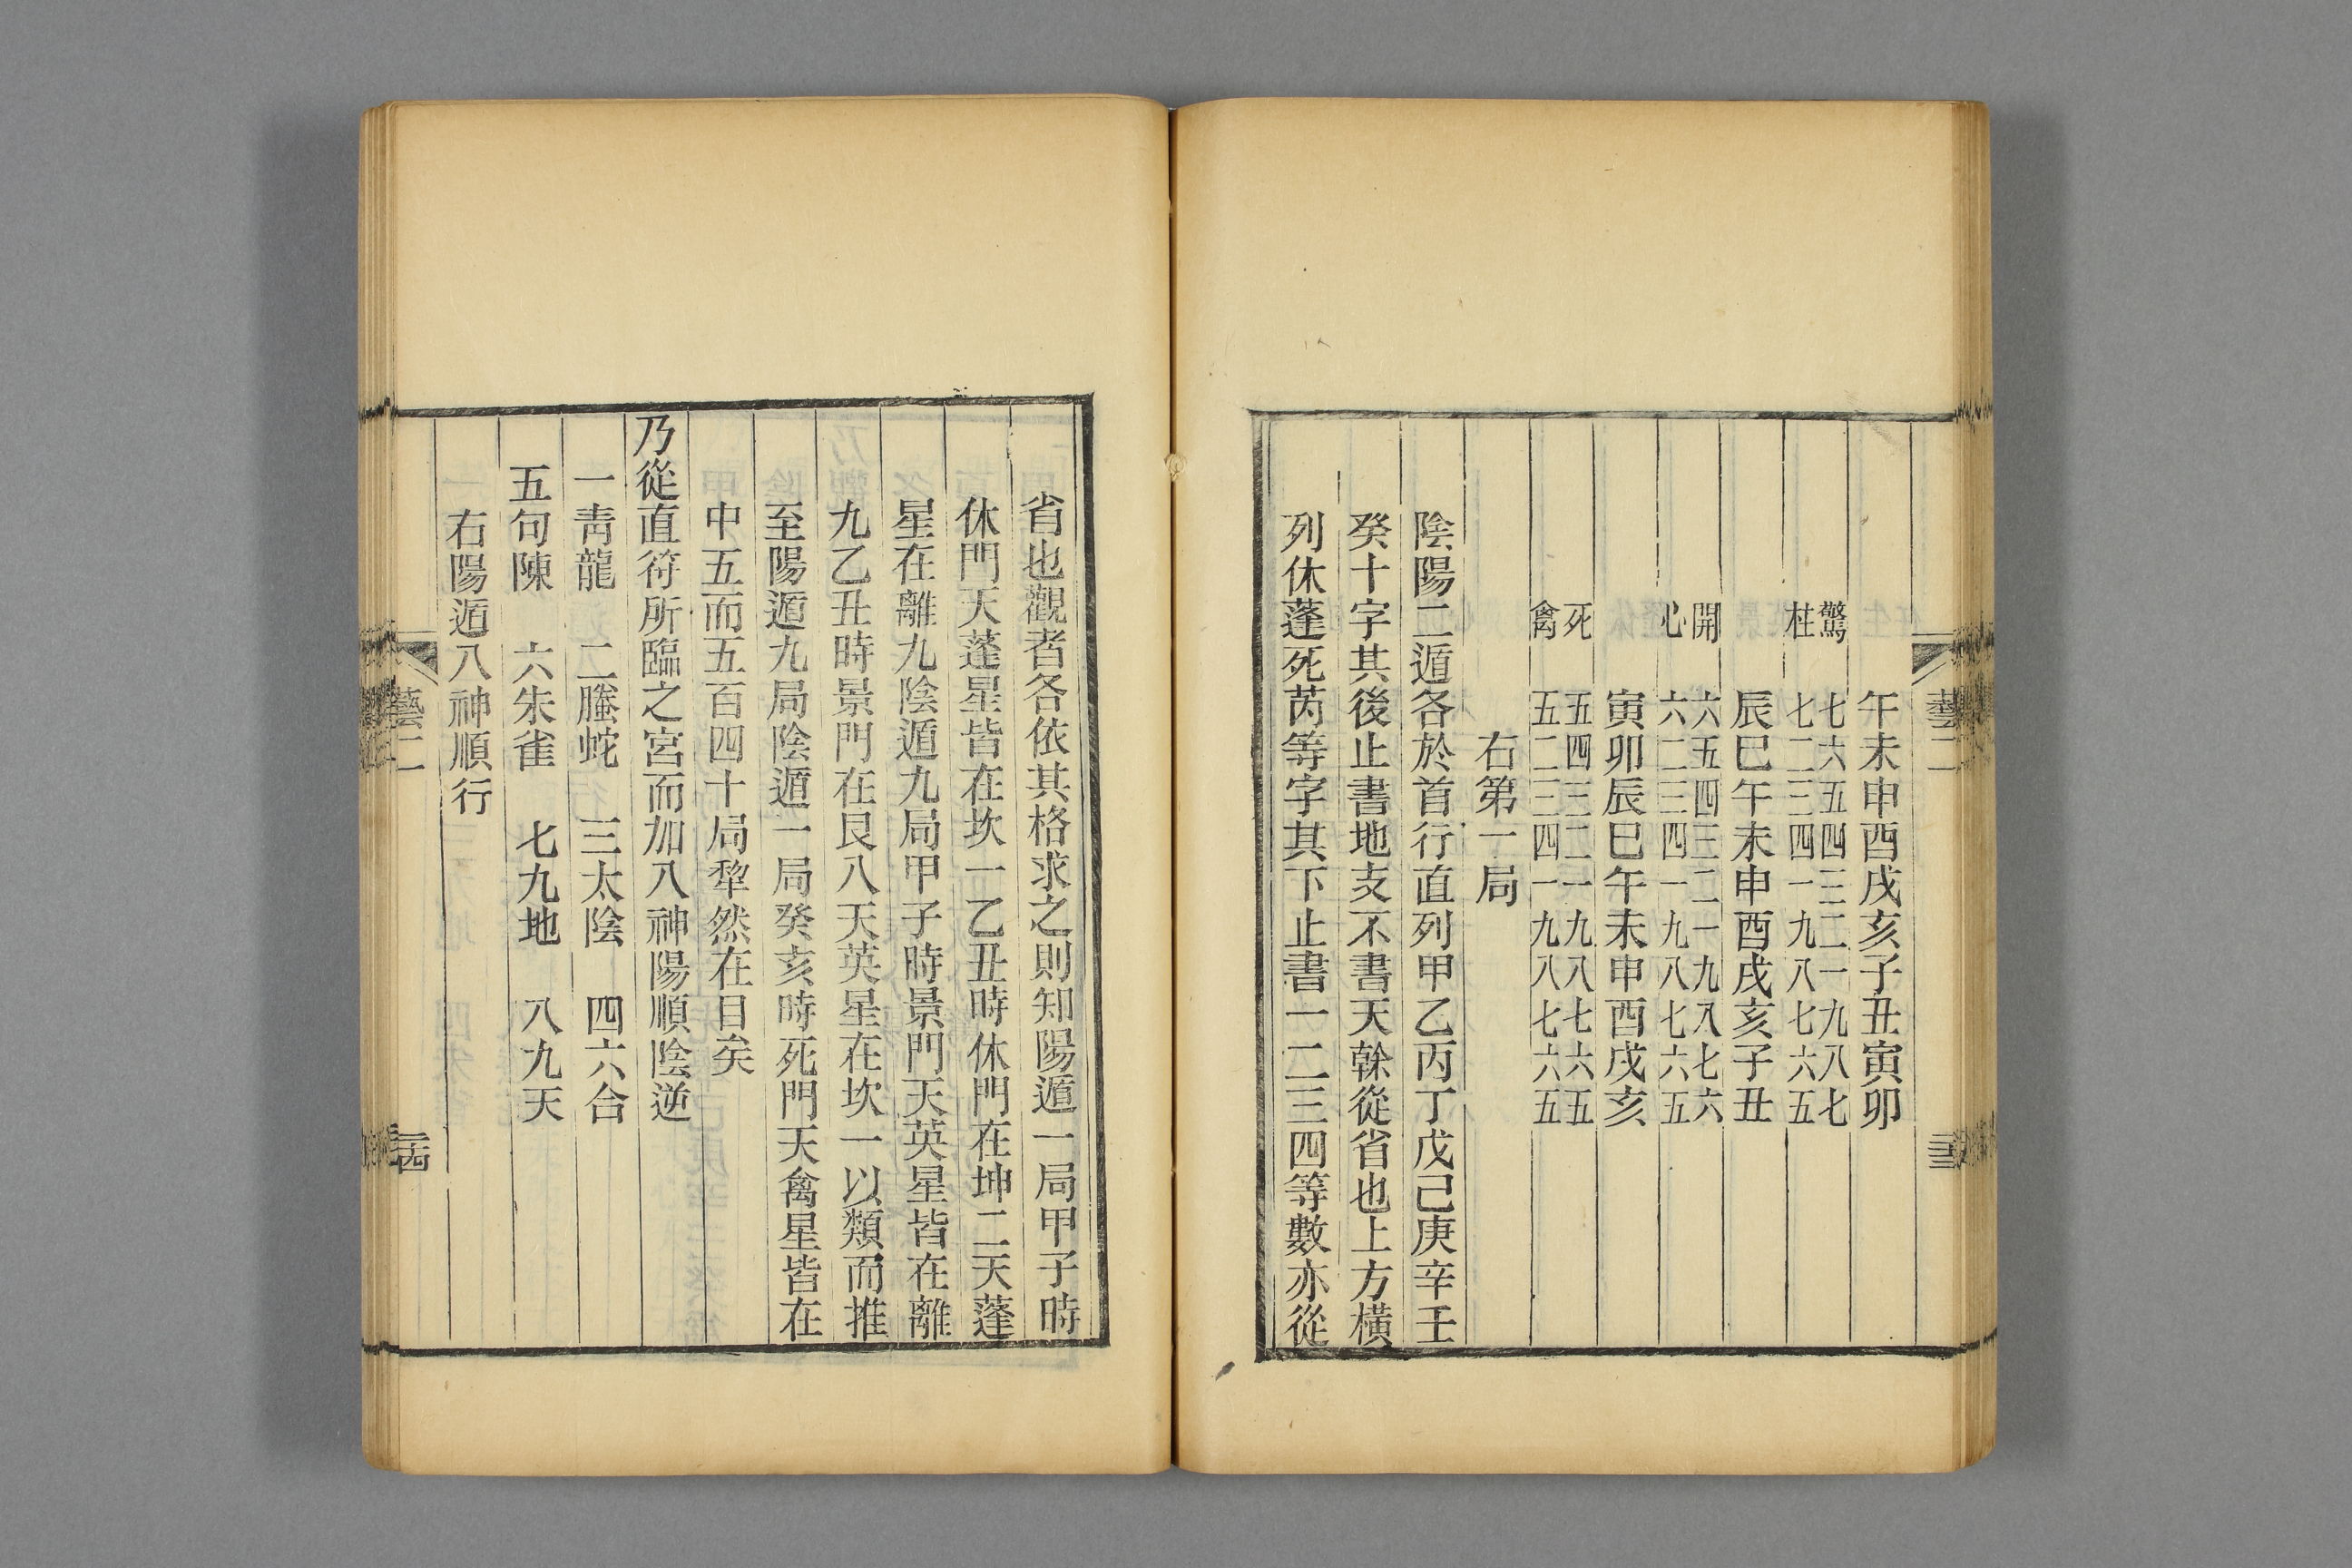 藝二
午未申酉戌亥子丑寅卯
驚 七六五四三二一九八七
柱 七二三四一九八七六五
辰巳午未申酉戌亥子丑
開 六五四三二一九八七六
心 六二三四一九八七六五
寅卯辰巳午未申酉戌亥
死 五四三二一九八七六五
禽 五二三四一九八七六五
右第一局
陰陽二遁各於首行直列甲乙丙丁戊己庚辛壬
癸十字其後止書地支不書天榦從省也上方橫
列休蓬死芮等字其下止書一二三四等數亦從
省也觀者各依其格求之則知陽遁一局甲子時
休門天蓬星皆在坎一乙丑時休門在坤二天蓬
星在離九陰遁九局甲子時景門天英星皆在離
九乙丑時景門在艮八天英星在坎一以類而推
至陽遁九局陰遁一局癸亥時死門天禽星皆在
中五而五百四十局犂然在目矣
乃從直符所臨之宮而加八神陽順陰逆
一靑龍 二螣蛇 三太陰 四六合
五句陳 六朱雀 七九地 八九天
右陽遁八神順行
藝二